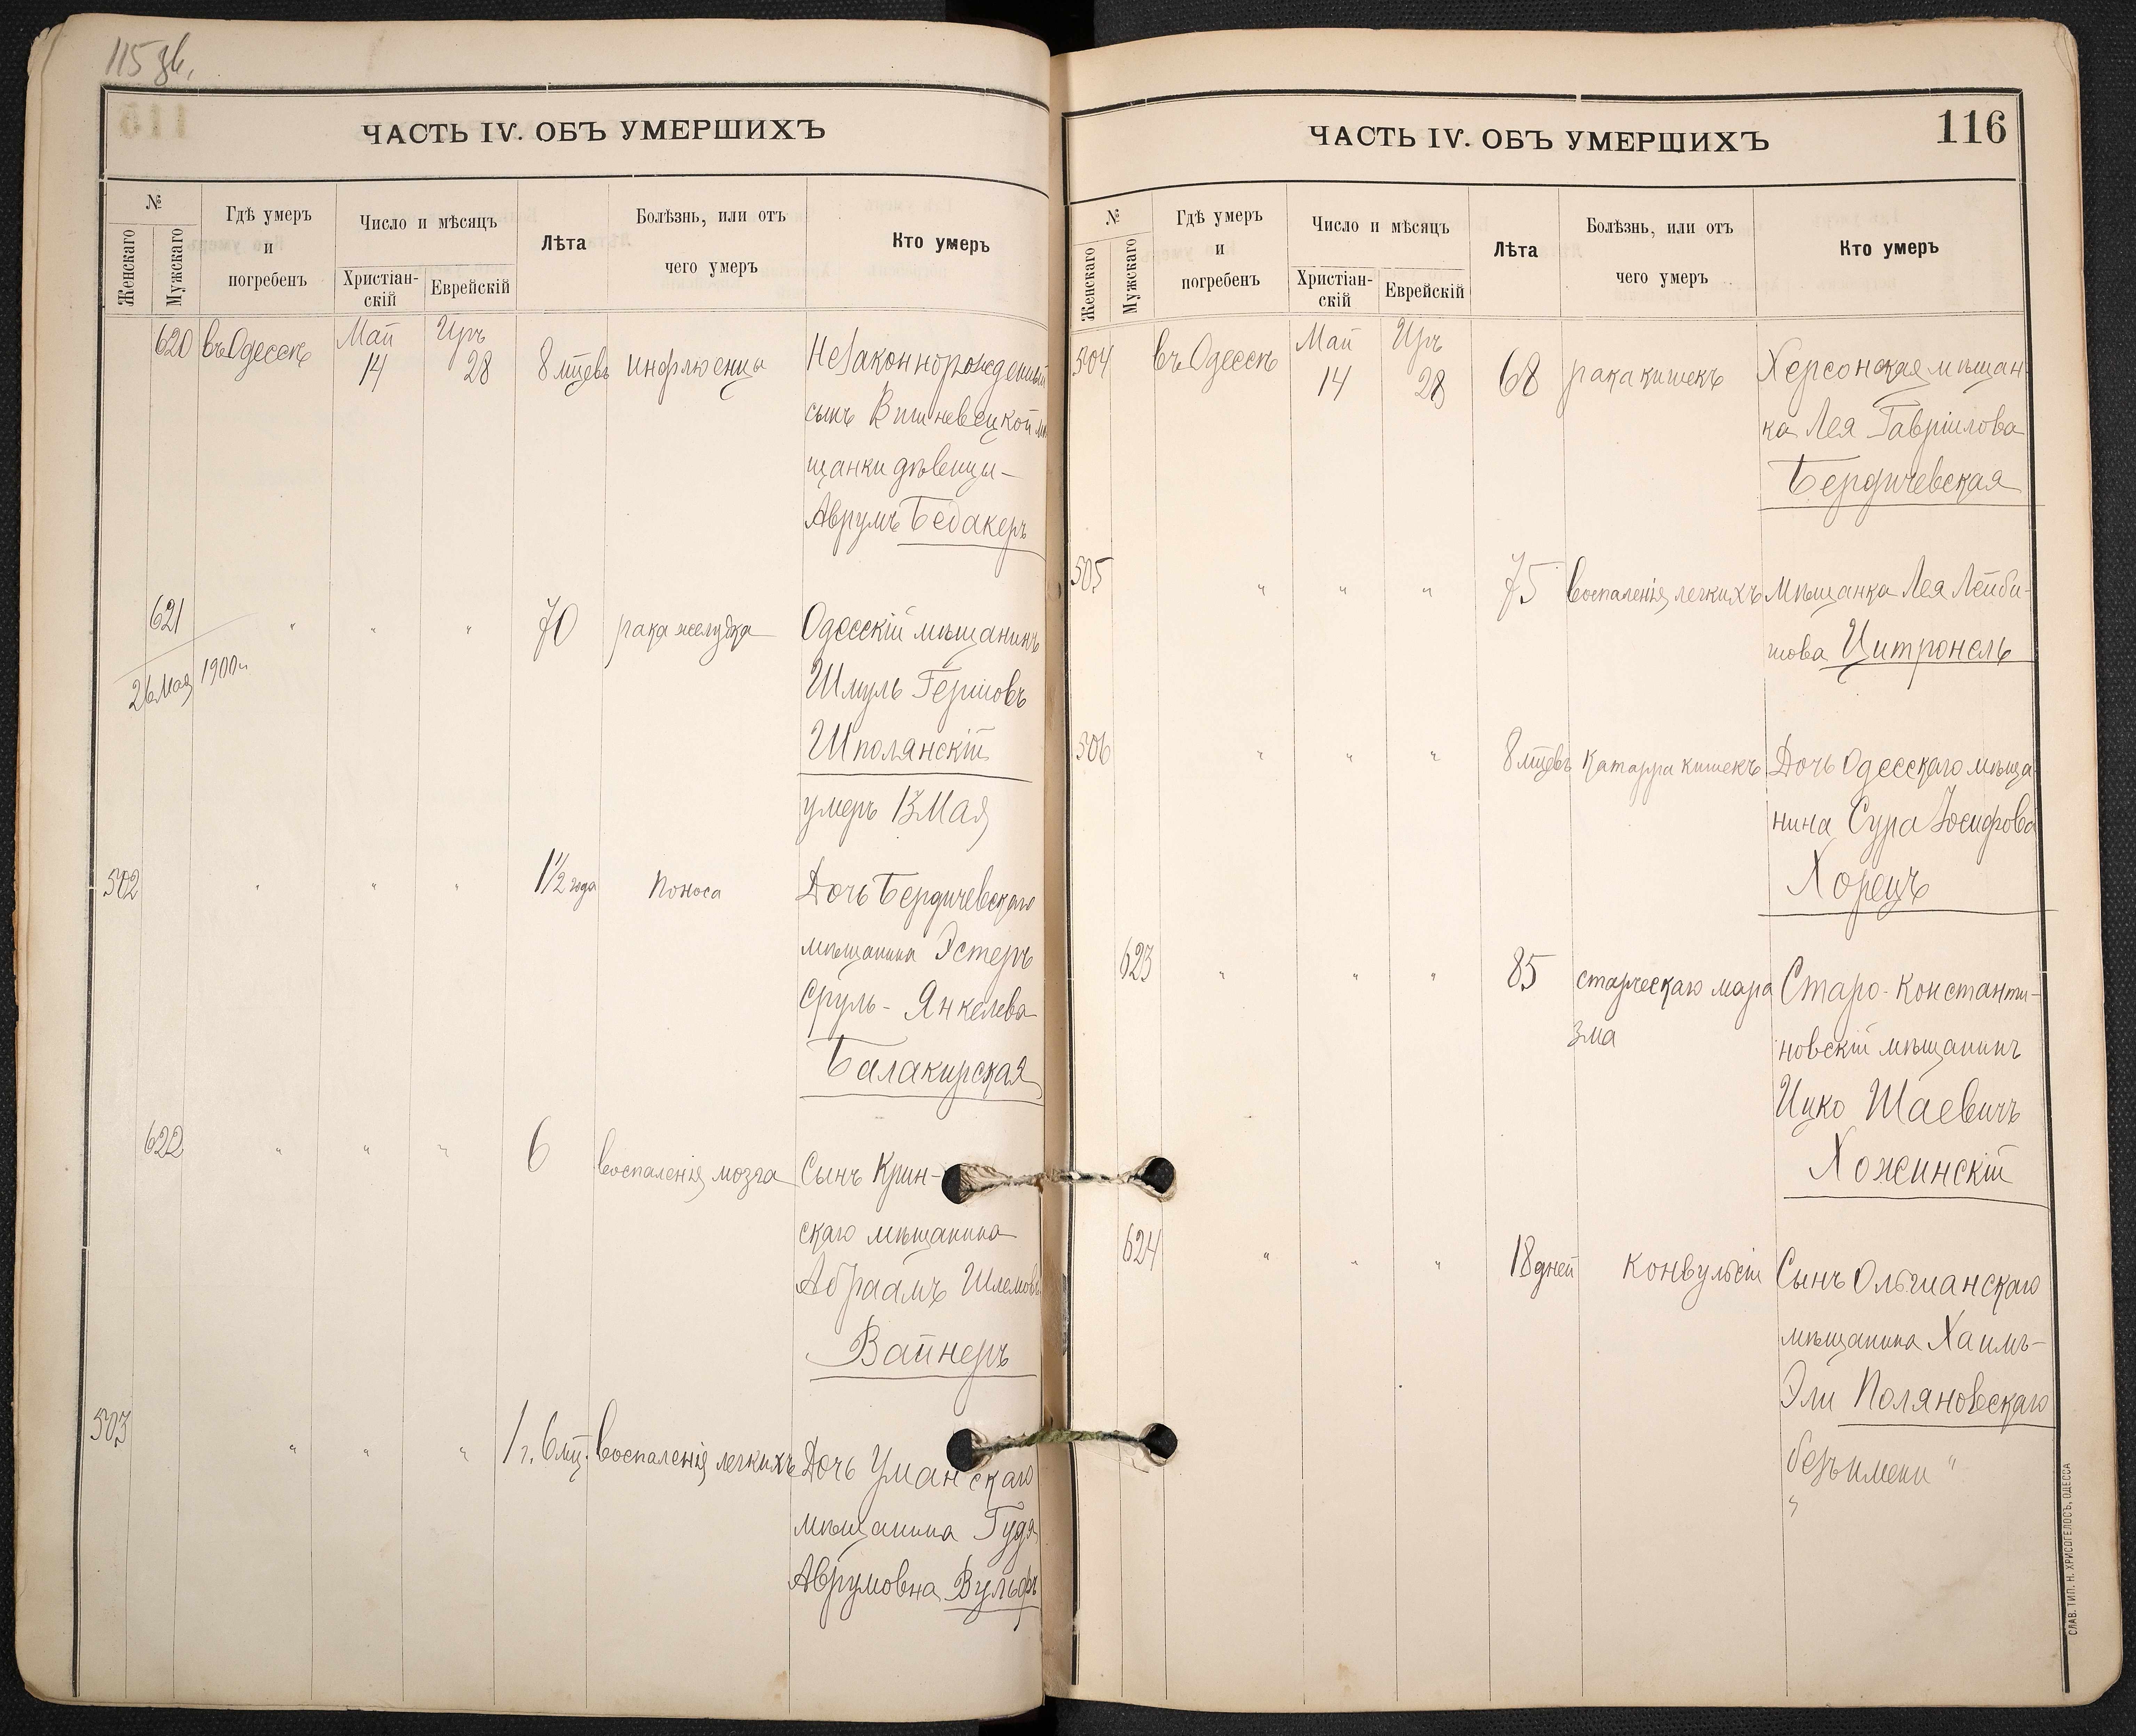 115 зв.
115
ЧАСТЬ IV. ОБЪ УМЕРШИХЪ
№
Женскаго
Мужскаго
Гдѣ умеръ
и
погребенъ
Число и мѣсяцъ
Христіан-
скій
Еврейскій
Лѣта
Болѣзнь, или отъ
чего умеръ
Кто умеръ
620 въ Одессѣ Май 14 Иръ 28 8 мцевъ инфлюенцы Незаконнорожденный
сынъ Вишневецкой мѣ
щанки дѣвицы-
Аврумъ Бедакеръ
621 " " " 70 рака желудка Одесскій мѣщанинъ
26 Мая 1900 г.
Шмуль Гершовъ
Шполянскій
умеръ 13 Мая
502 " " " 1 1/2 года поноса Дочь Бердичевскаго
мѣщанина Эстеръ
Сруль-Янкелева
Балакирская
622 " " " 6 воспаленія мозга Сынъ Крин-
скаго мѣщанина
Абраамъ Шлемовъ
Вайнеръ
503 " " " 1 г. 6 мц. воспаленія легкихъ Дочь Уманскаго
мѣщанина Гудя
Аврумовна Вульфъ
ЧАСТЬ IV. ОБЪ УМЕРШИХЪ
116
№
Женскаго
Мужскаго
Гдѣ умеръ
и
погребенъ
Число и мѣсяцъ
Христіан-
скій
Еврейскій
Лѣта
Болѣзнь, или отъ
чего умеръ
Кто умеръ
504 въ Одессѣ Май 14 Иръ 28 68 рака кишекъ Херсонская мѣщан-
ка Лея Гавріилова
Бердичевская
505 " " " 75 воспаленія легкихъ Мѣщанка Лея Лейби-
шова Цитронель
506 " " " 8 мцевъ катарра кишекъ Дочь Одесскаго мѣща-
нина Сура Іосифова
Хорецъ
623 " " " 85 старческаго мара Старо-Константи-
зма
новскій мѣщанинъ
Ицко Шаевичъ
Хожинскій
624 " " " 18 дней конвульсіи Сынъ Ольшанскаго
мѣщанина Хаимъ-
Эли Поляновскаго
безъ имени "
"
СЛАВ. ТИП. Н. ХРИСОГЕЛОСЪ, ОДЕССА